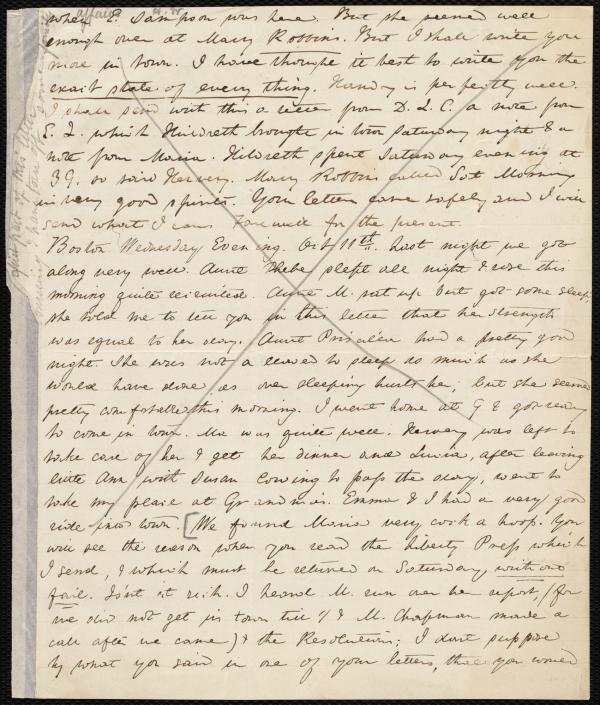 when C. Sampson was here. But she seemed well
enough over at Mary Robbins. But I shall write you
more in town. I have thought it best to write you the
exact state of every thing. Handy is perfectly well.
I shall send with this a letter from D. L. C. a note from
E. Q. which Hildreth brought in town Saturday night & a
note from Maria. Hildreth spent Saturday evening at
39. so said Hervey. Mary Robbins called Sat Morning
in very good spirits. Your letters came safely and I will
send what I can. Farewell for the present.
Boston Wednesday Evening. Oct 11th. Last night we got
along very well. Aunt Phebe slept all night & rose this
morning quite recruited. Aunt M. sat up but got some sleep,
she told me to tell you in this letter that her strength
was equal to her day. Aunt Priscilla had a pretty good
night. She was not allowed to sleep so much as she
would have done as over sleeping hurts her, but she seemed
pretty comfortable this morning. I went home at 9 & got ready
to come in town. Ma was quite well. Hervey was left to
take care of her & get her dinner and Lucia, after leaving
little Ann with Susan Cowing to pass the day, went to
take my place at Grandma's. Emma & I had a very good
ride into town. [We found Maria very cock a hoop. You
will see the reason when you read the Liberty Press which
I send, & which must be returned on Saturday, without
fail. Isn't it rich. I heard M. run over her report, (for
we did not get in town till 1/2 & M. Chapman made a
call after we came) & the Resolutions; I dont suppose
by what you said in one of your letters, that you would